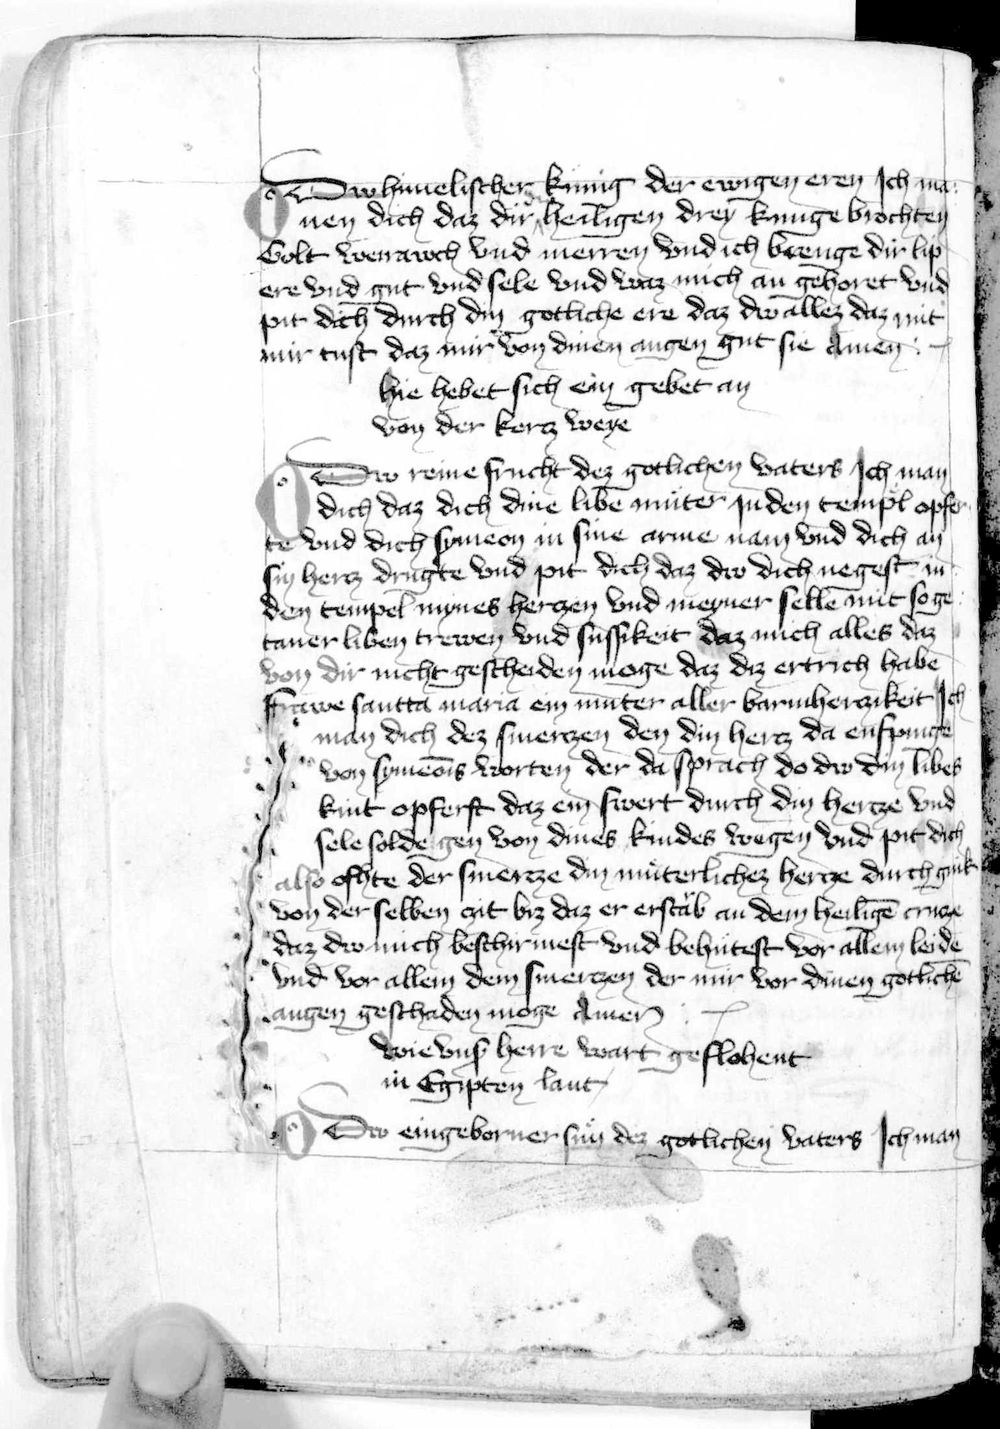 O Dw himelischer kunig der ewigen eren Ich ma
nen dich daz dir heiligen dreÿ kunige brochten
Golt weirawch vnd merren vnd ich brenge dir lip
ere vnd gut vnd sele vnd waz mich an gehoret vnd
pit dich durch din gotliche ere daz dw allez daz mit
mir tust daz mir von dinen augen gut sie Amen
hie hebet sich ein gebet an
von der kertz weÿe
O Dw reine frucht dez gotlichen vaters Ich man
dich daz dich dine libe muter In den tempel opfer
te vnd dich sÿmeon in sine arme nam vnd dich an
sin hertz drugte vnd pit dich daz dw dich negest in
den tempel mÿnes hertzen vnd meÿner selle mit so ge
taner liben trewen vnd sussikeit daz mich alles daz
von dir nicht gescheiden moge daz diz ertrich habe
Frawe santta maria ein muter aller barmhertzikeit Ich
man dich dez smertzen den din hertz da enfpinge
von sÿmeonis worten der da sprach do dw din libes
kint opferst daz ein swert durch din hertze vnd
sele solde gen von dines kindes wegen vnd pit dich
also ofhte der smertze din muterlichez hertze durch gink
von der selben zit biz daz er erstab an dem heilige crutze
daz dw mich beschirmest vnd behutest vor allem leide
vnd vor allem dem smertzen der mir vor dinen gotliche
augen geschaden moge Amen
Wie vnser herre wart geflohent
in Egipten lant
O Dw eingeborner sun dez gotlichen vaters Ich man